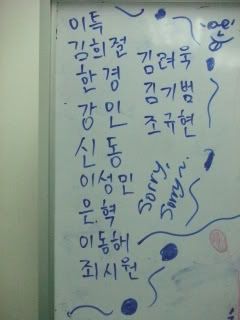 이특
김희철
한경
강인
신동
이성민
은혁
이동해
최시원
김려욱
김기범
조규현
Sorry,
sorry